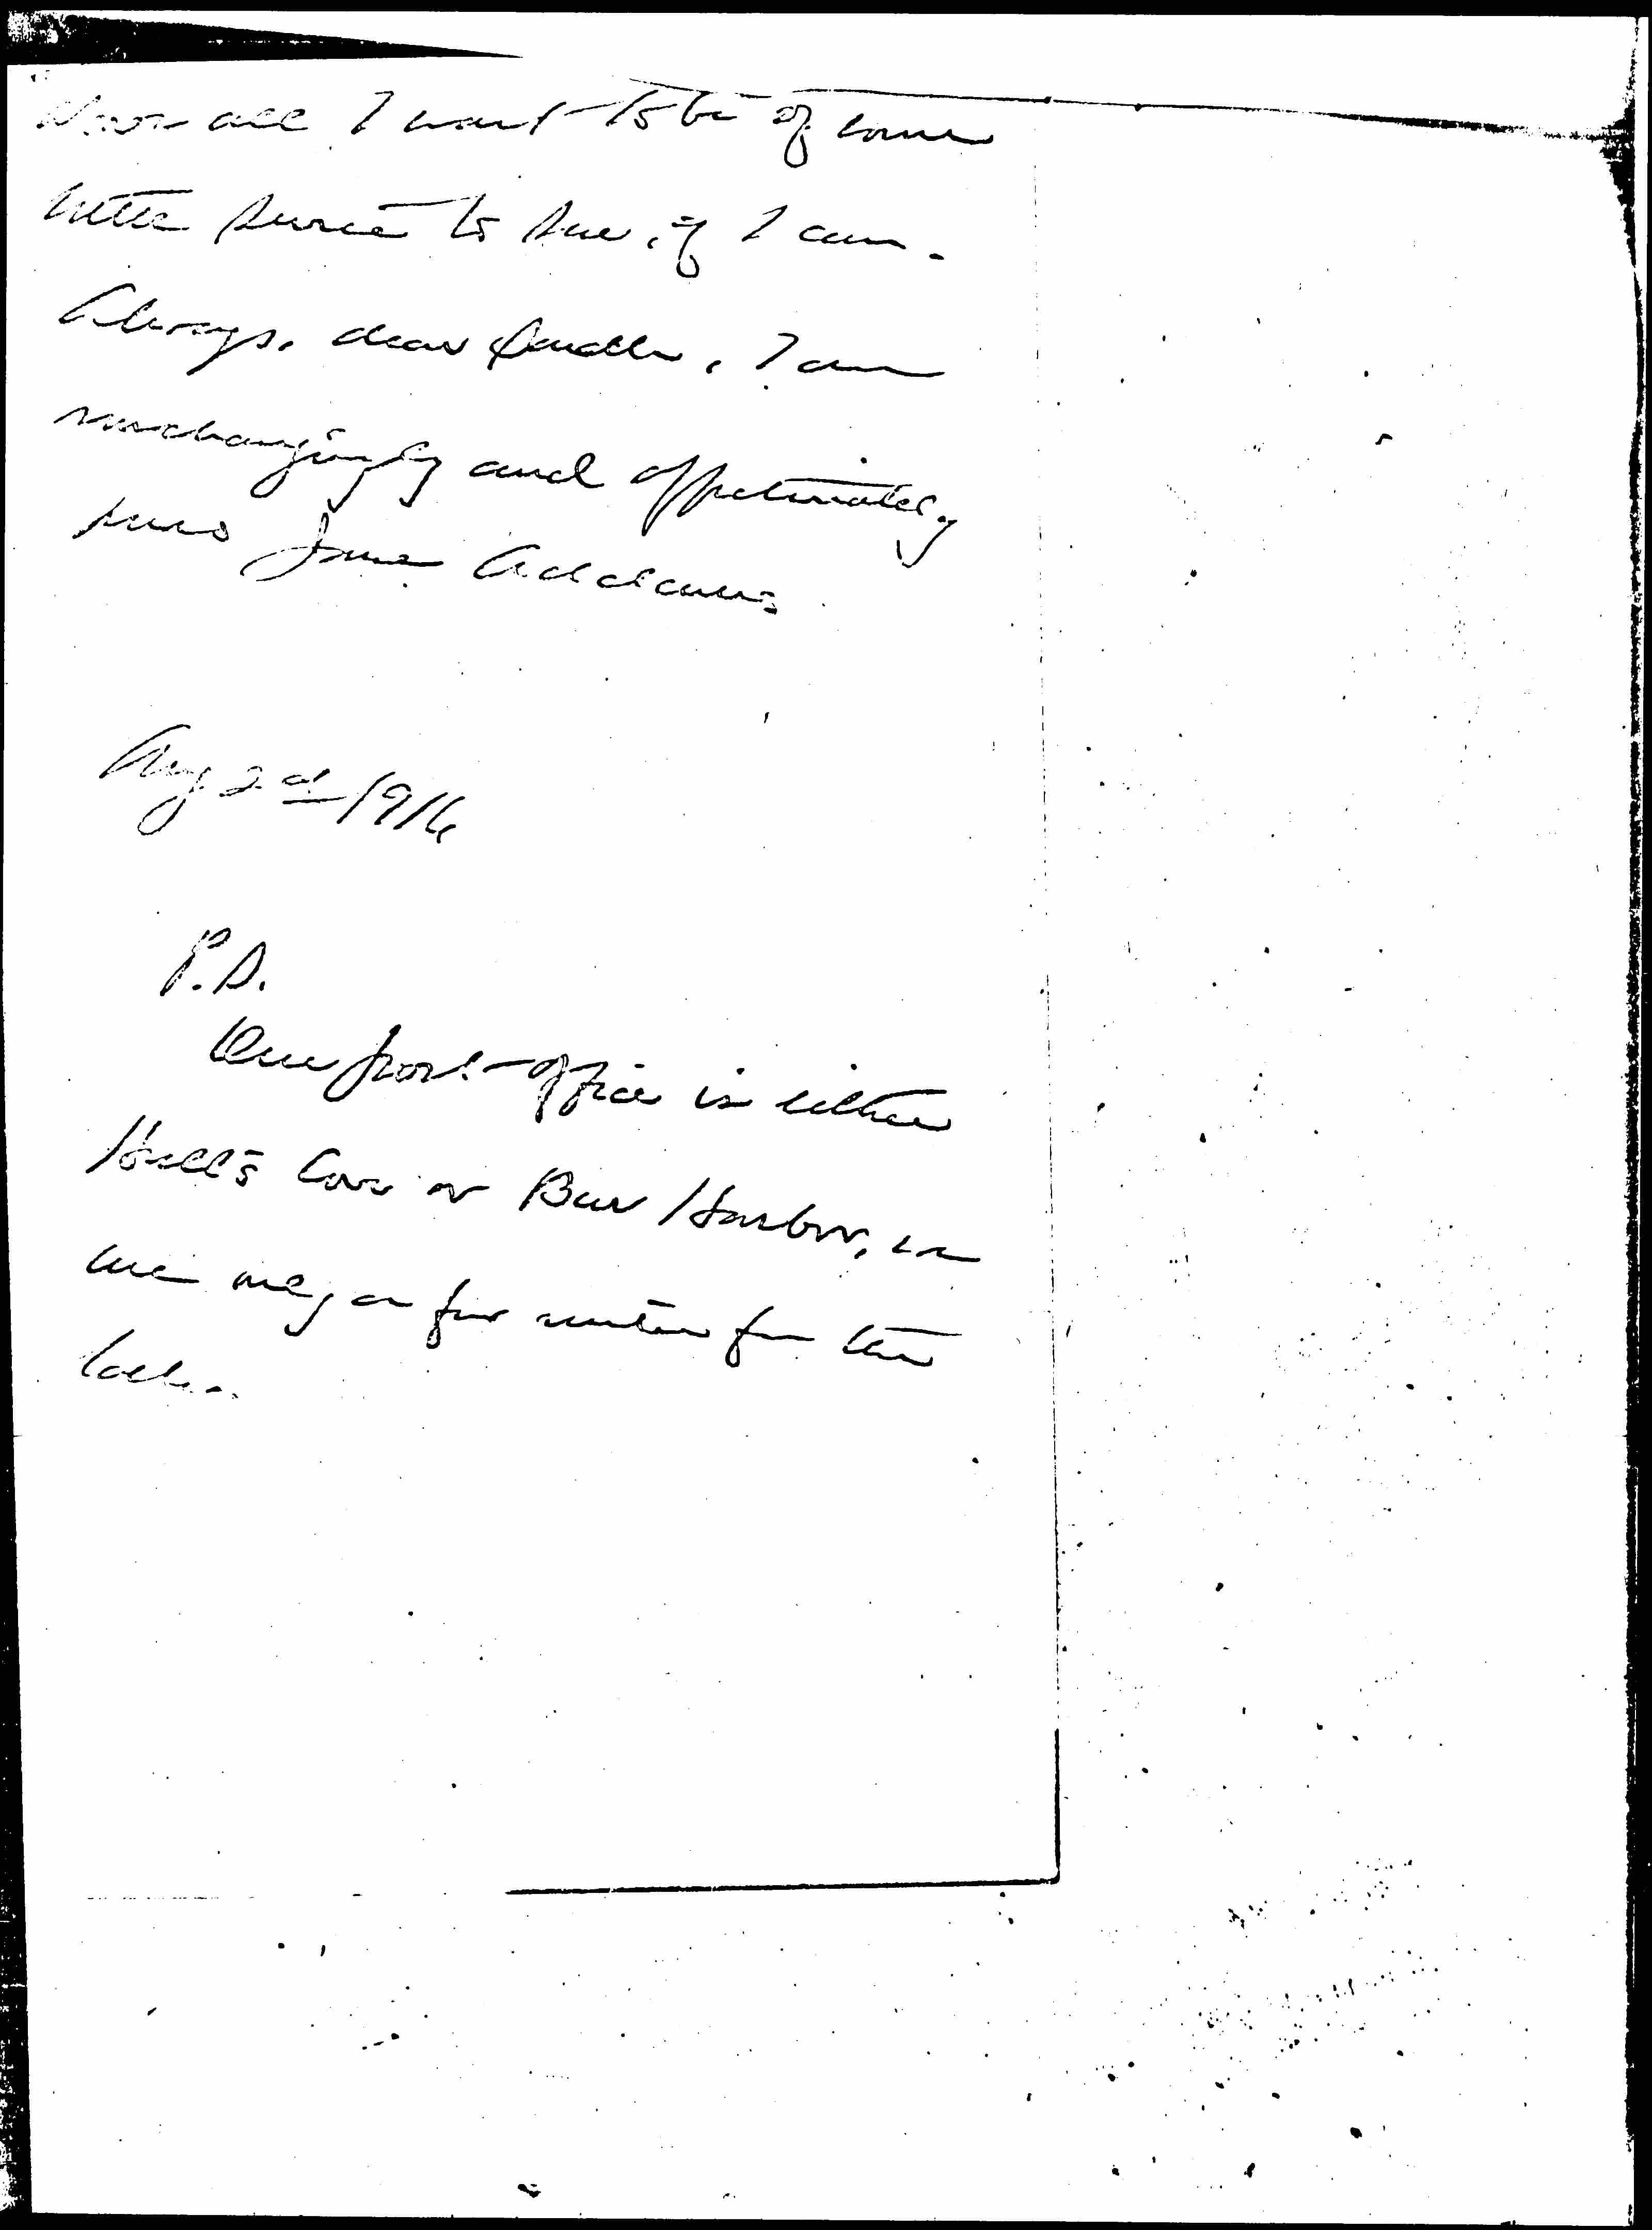 all I want to be of some
little service to you, if I can.
Always, dear Paulett, I am
unchangingly and affectionately
yours Jane Addams
Aug 2d 1916
P.S.
Our post-office is either
Hull's Cove or Bar Harbor, as
we only a few minutes from the
latter.